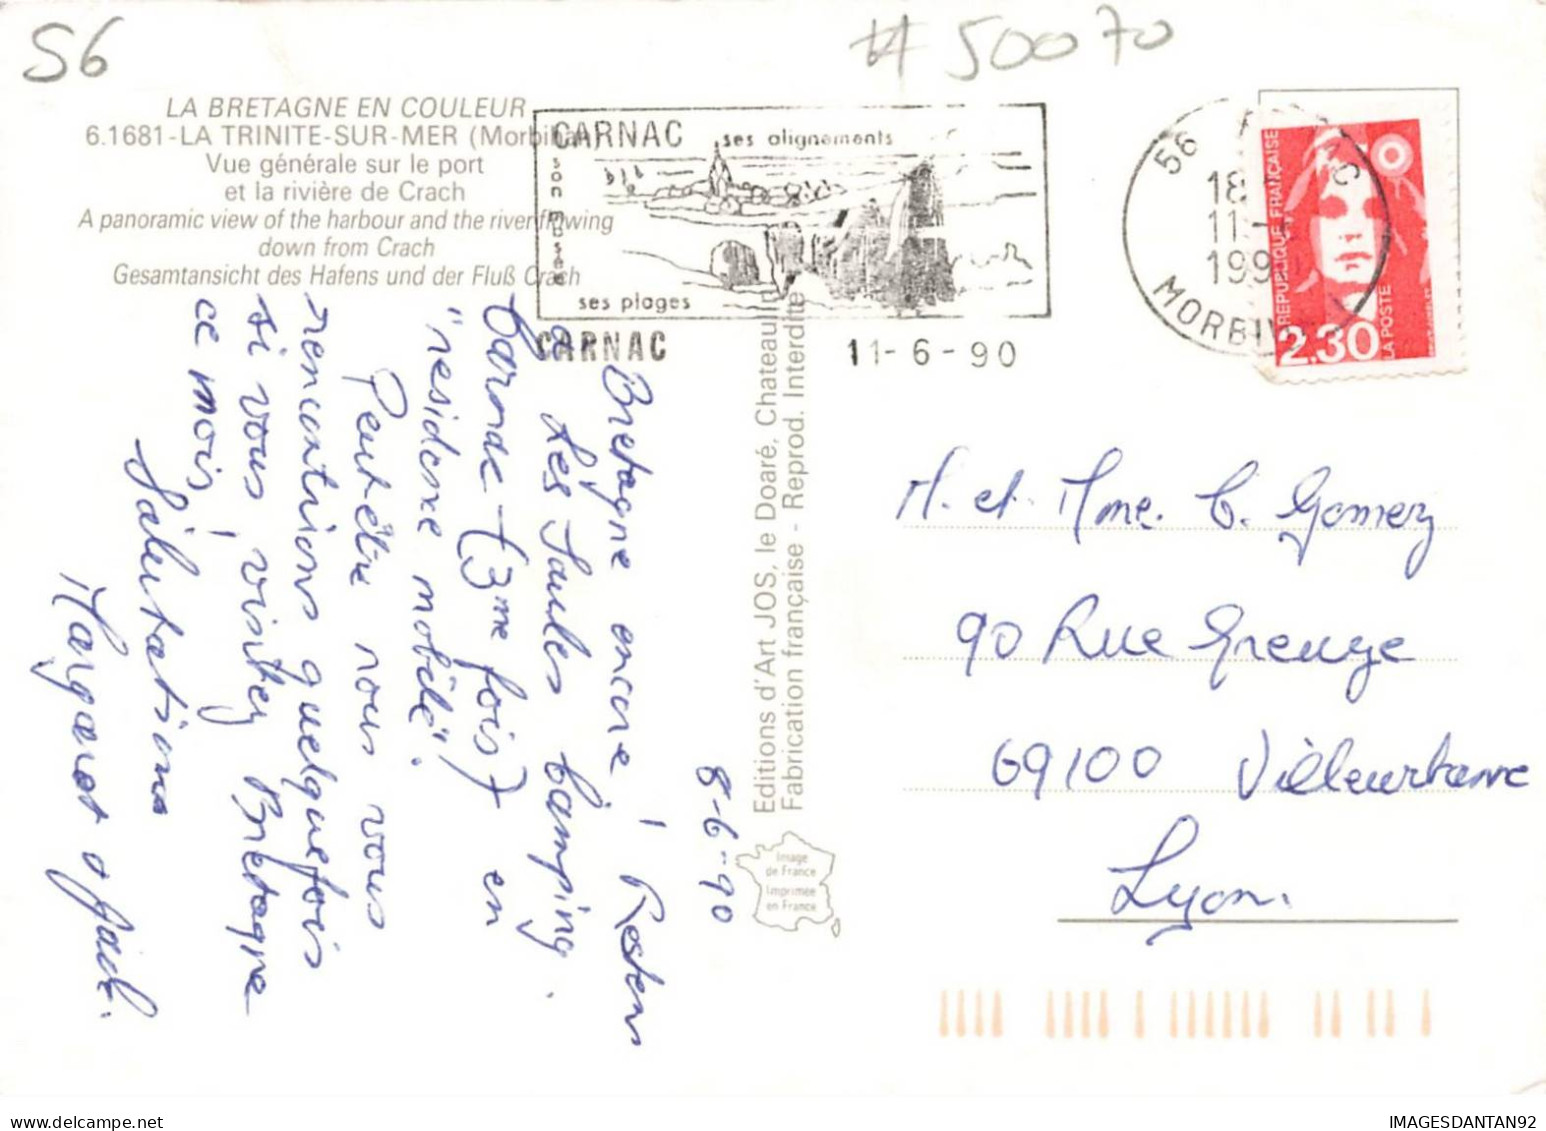 56
#50070
LA BRETAGNE EN COULEUR
6.1681-LA TRINITE-SUR-MER (Morbihan)
Vue générale sur le port
et la rivière de Crach
A panoramic view of the harbour and the river flowing
down from Crach
Gesamtansicht des Hafens und der Fluß Crach
CARNAC
ses alignements
son musée
ses plages
CARNAC
11-6-90
56
18
11-
1990
MORBIHAN
REPUBLIQUE FRANÇAISE
LA POSTE
2,30
8-6-90
Bretagne encore! Restons
a Les Saules Camping.
Carnac (3me fois) en
"residence mobile".
Peut être nous vous
rencontrions quelquefois
si vous visitez Bretagne
ce mois!
Salutations
Margaret &
Editions d'Art JOS, le Doaré, Chateaulin
Fabrication française - Reprod. Interdite
Image
de France
Imprimée
en France
M. et Mme. C. Gomez
90 Rue Greuze
69100 Villeurbanne
Lyon.
IMAGESDANTAN92